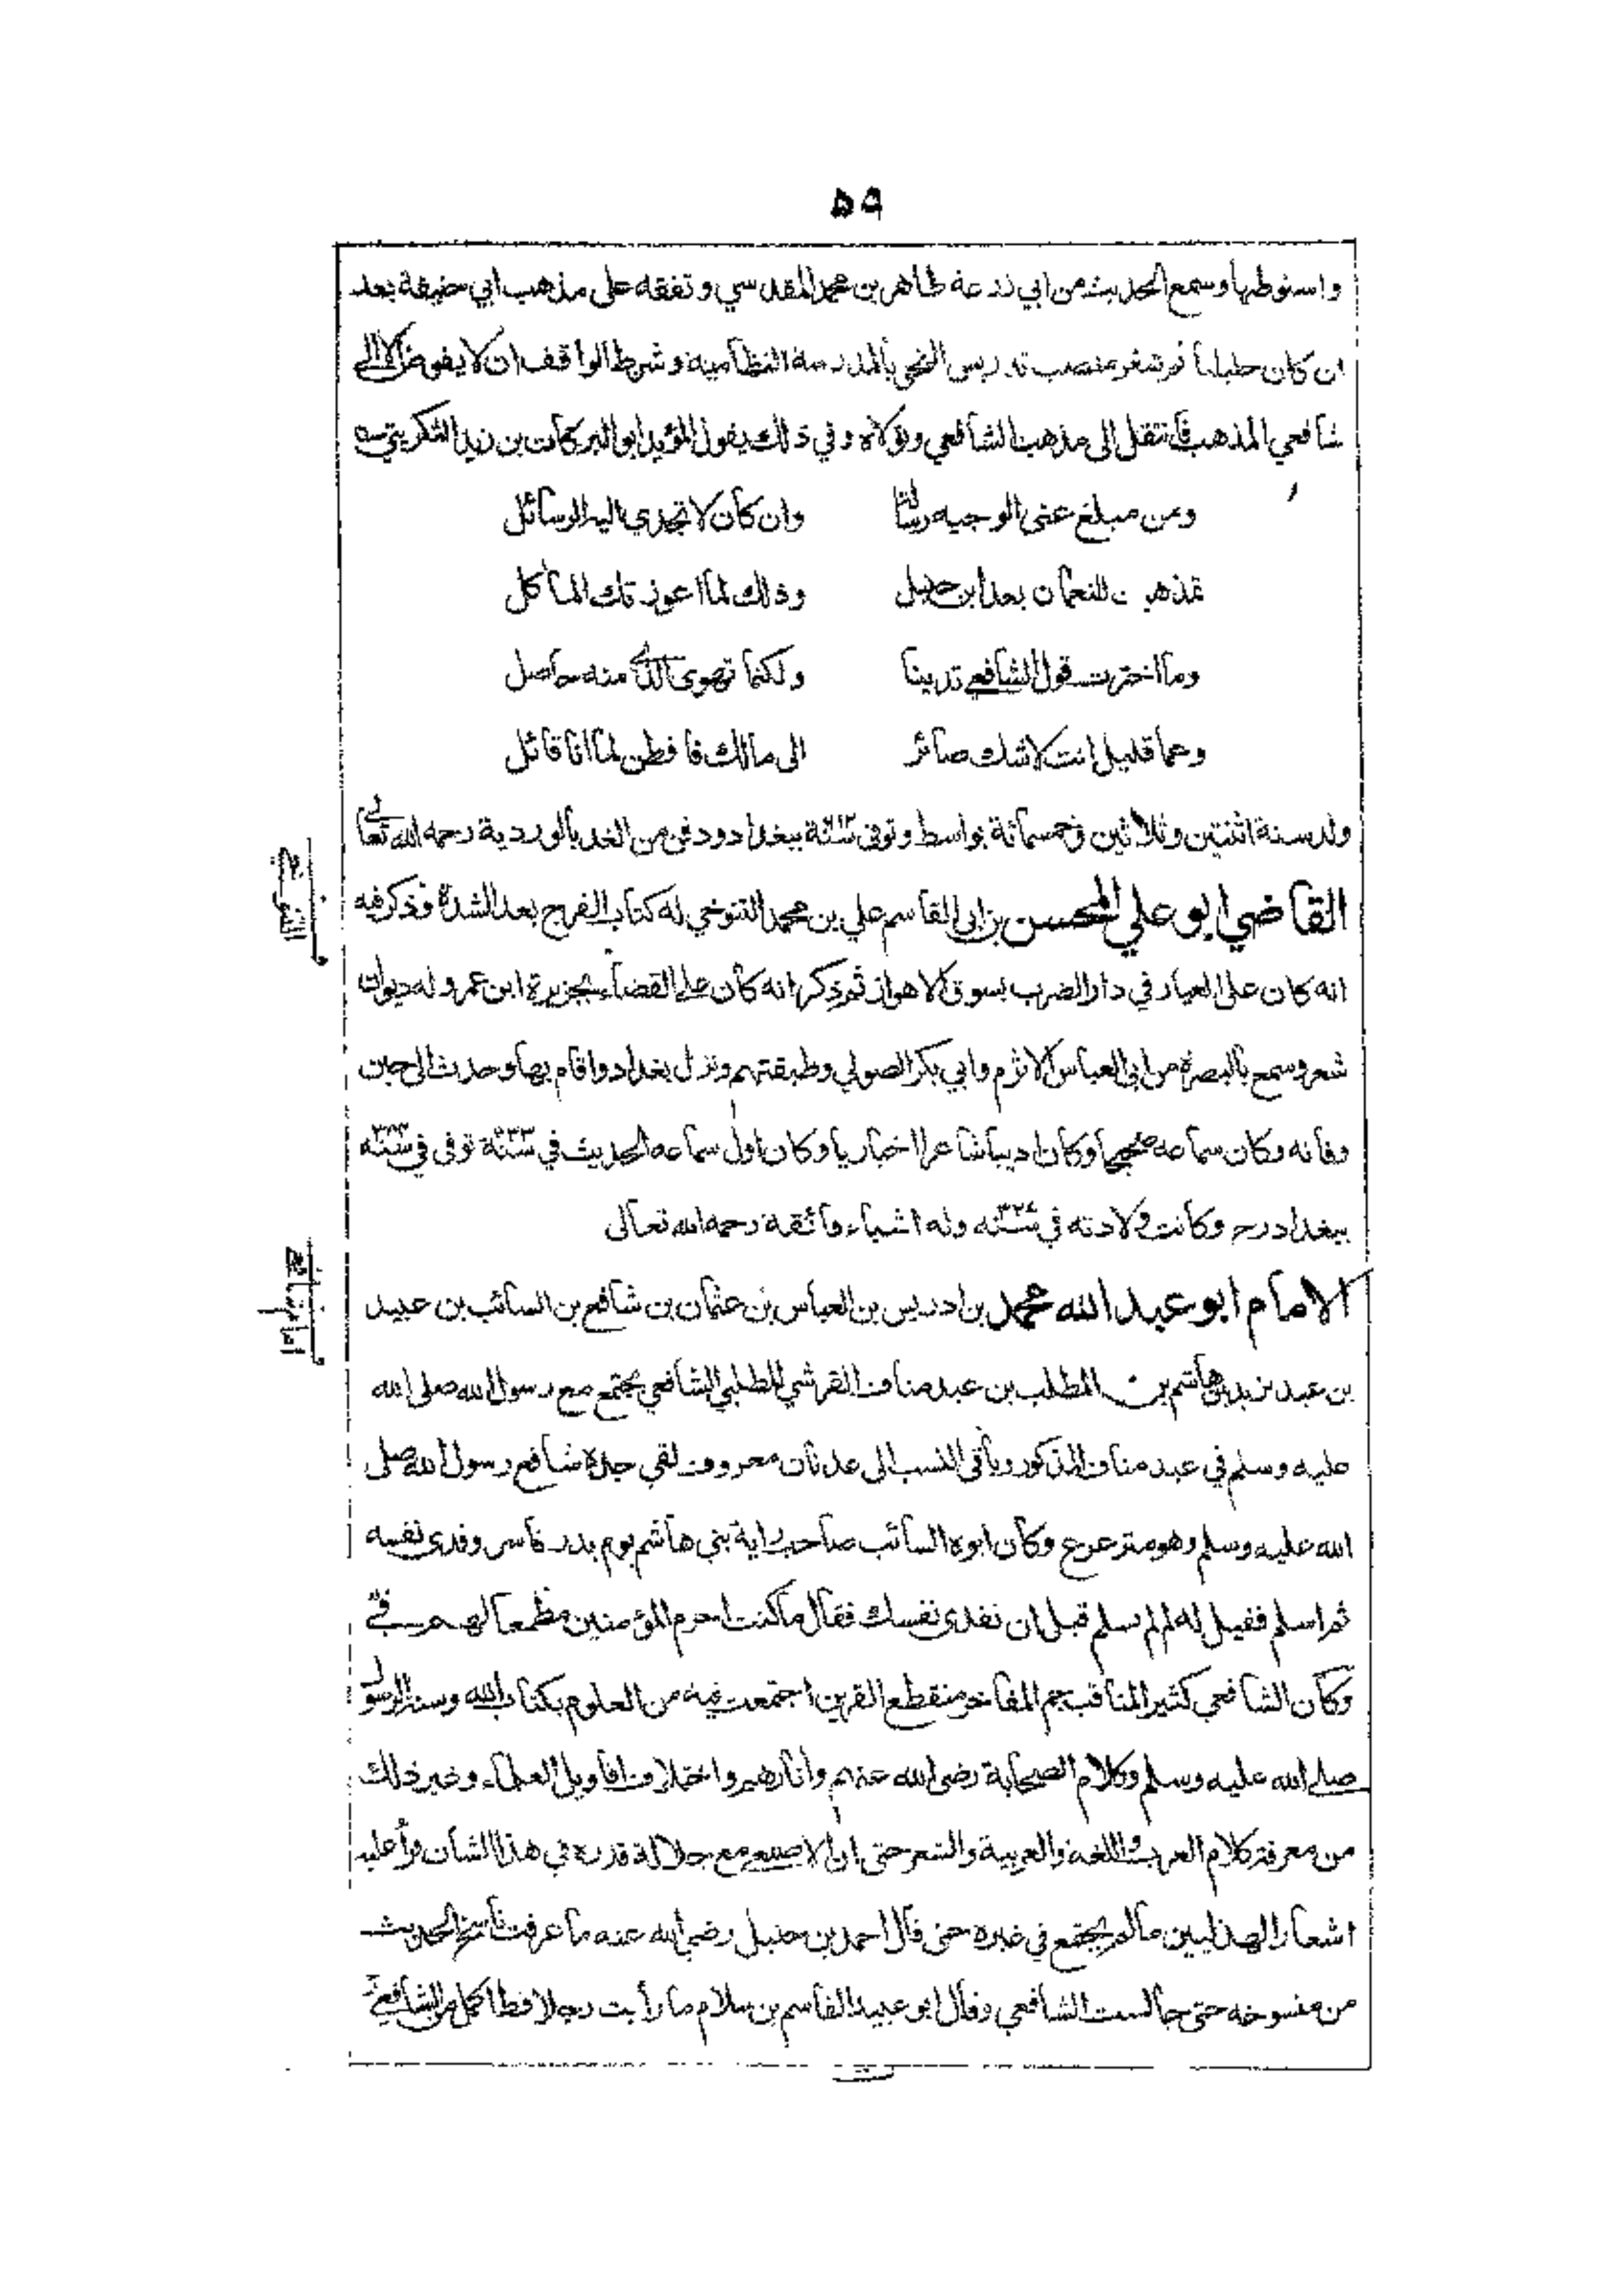 ٥٩
واستوطنها وسمع الحديث من ابي زرعة طاهر بن محمد المقدسي وتفقه على مذهب ابي حنيفة بعد
ان كان حنبليا ثم شغر منصب تدريس النحو بالمدرسة النظامية وشرط الواقف ان لا يفوض الا الى
شافعي المذهب فانتقل الى مذهب الشافعي وتولاه وفي ذلك يقول المؤيد ابو البركات بن زيد التكريتي
ومن مبلغ عنى الوجيه رسالة وان كان لا تجدي اليه الرسائل
تمذهبت للنعمان بعد ابن حنبل وذلك لما اعوزتك المآكل
وما اخترت قول الشافعي تدينا ولكنما تهوى الذي منه حاصل
وعما قليل انت لا شك صائر الى مالك فافطن لما انا قائل
ولد سنة اثنتين وثلاثين وخمسمائة بواسط وتوفى سنة ببغداد ودفن من الغد بالوردية رحمه الله تعالى
القاضي ابو علي المحسن بن ابي القاسم علي بن محمد التنوخي له كتاب الفرج بعد الشدة وذكر فيه
انه كان على العيار في دار الضرب بسوق الاهواز ثم ذكر انه كان على القضاء بجزيرة ابن عمر وله ديوان
شعر وسمع بالبصرة من ابي العباس الاثرم وابي بكر الصولي وطبقتهم ونزل بغداد واقام بها وحدث الى حين
وفاته وكان سماعه صحيحا وكان اديبا شاعرا اخباريا وكان اول سماعه الحديث في سنة ٣٣٣ توفى في سنة
ببغداد رح وكانت ولادته في سنة وله اشياء فائقة رحمه الله تعالى
الامام ابو عبد الله محمد بن ادريس بن العباس بن عثمان بن شافع بن السائب بن عبيد
بن عبد يزيد بن هاشم بن المطلب بن عبد مناف القرشي المطلبي الشافعي يجتمع مع رسول الله صلى الله
عليه وسلم في عبد مناف المذكور وباقى النسب الى عدنان معروف لقي جده شافع رسول الله صلى
الله عليه وسلم وهو مترعرع وكان ابوه السائب صاحب راية بني هاشم يوم بدر فاسر وفدى نفسه
ثم اسلم فقيل له لم لم تسلم قبل ان تفدى نفسك فقال ما كنت احرم المؤمنين مطمعا لهم في
وكان الشافعي كثير المناقب جم المفاخر منقطع القرين اجتمعت فيه من العلوم بكتاب الله وسنة الرسول
صلى الله عليه وسلم وكلام الصحابة رضى الله عنهم وآثارهم واختلاف اقاويل العلماء وغير ذلك
من معرفة كلام العرب واللغة والعربية والشعر حتى ان الاصمعي مع جلالة قدره في هذا الشان قرأ عليه
اشعار الهذليين ما لم يجتمع في غيره حتى قال احمد بن حنبل رضي الله عنه ما عرفت ناسخ الحديث
من منسوخه حتى جالست الشافعي وقال ابو عبيد القاسم بن سلام ما رأيت رجلا قط اكمل من الشافعي
التنوخي
امام شافعي